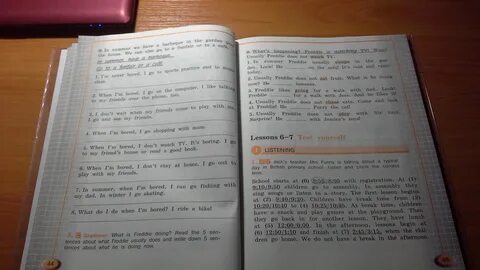 0. In summer we have a barbecue in the garden or
the house. We can also go to a funfair or to a café.
In summer, have a barbecue.
Go to a funfair or a café.
1. I'm never bored. I go to sports practice and to music
2. When I'm bored, I go on the computer. I like talking
to my friends over the phone, too.
3. I don't wait when my friends come to play with me.
I go and see my friends.
4. When I'm bored, I go shopping with mum.
5. When I'm bored, I don't watch TV. It's boring. I go
to my friend's house or read a good book.
6. When I'm bored, I don't stay at home, I go out to
play with my friends.
7. In summer, when I'm bored, I can go fishing with
my dad. In winter I go skating.
8. What do I do when I'm bored? I ride a bike!
What is Freddie doing? Read the 5 sen-
tences about what Freddie usually does and write down 5 sen-
tences about what he is doing now.
44
0. What's happening? Freddie is watching TV! Wow!
Usually Freddie does not watch TV.
1. In summer Freddie usually sleeps in the gar-
den. Look! He on the sofa! It's cool and rainy
today.
2. Usually Freddie does not eat fruit. What is he doing
now? He bananas.
3. Freddie likes going for a walk with dad. Look!
Freddie for a walk with Jess. Just he likes it!
4. Usually Freddie does not chase cats. Come and look
at Freddie! He Furry the cat!
5. Usually Freddie does not play with
Surprise! He with Jessica's toys!
Lessons 6–7 Test yourself
1 LISTENING
teacher Miss Funny is talking about a typical
day in British primary school. Listen and circle the correct
time.
School starts at (0) 8:55/8:50 with registration. At (1)
9:10/9:50 children go to assembly. In assembly they
sing songs or listen to a story. The first lesson begins
at (2) 9:40/9:20. Children have break time from (3)
10:20/10:40 to (4) 10:25/10:50. At break time, children
have a snack and play games at the playground. Then they
go back to for another lesson. They have lunch
at (5) 12:00/6:00. In the afternoon, lessons begin at
(6) 12:50/1:00 and finish at (7) 2:45/3:15, when the chil-
dren go home. We do not have a break in the afternoon.